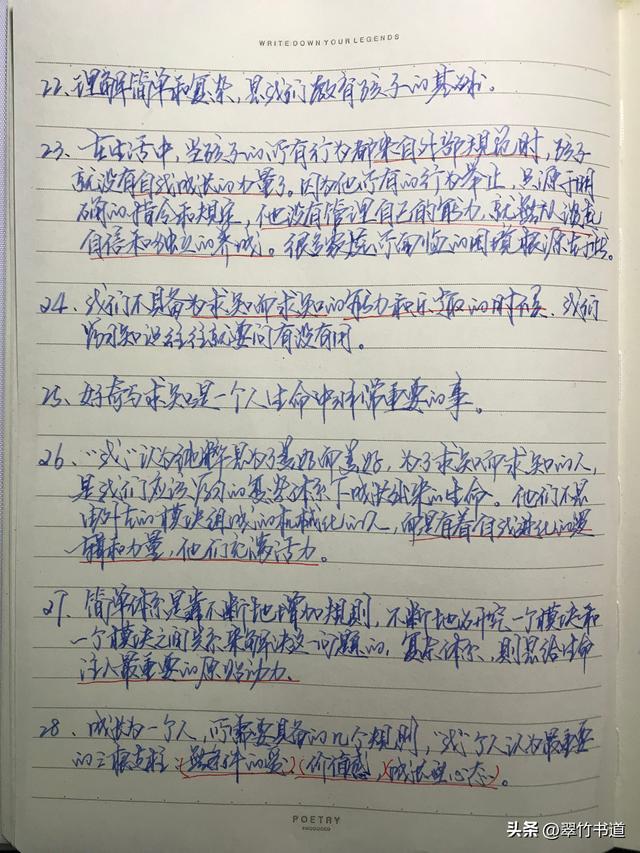 WRITE DOWN YOUR LEGENDS
22、理解简单和复杂,是我们教育孩子的基础。
23、在生活中,当孩子的所有行为都来自外部规范时,孩子
就没有自我成长的力量了。因为他所有的行为举止,只源于明
确的指令和规定,他没有管理自己的能力,就根本没有
自信和独立的养成。很多家庭所面临的困境根源于此。
24、我们不具备为求知而求知的能力和乐趣的时候,我们
学习知识往往就要问有没有用。
25、好奇与求知是一个人生命中非常重要的事。
26、“我”认为纯粹是为了美好而美好,为了求知而求知的人,
是我们应该学习的复杂体系下成长出来的生命。他们不是
由外在的模块组成的机械化的人,而是有着自我进化的逻
辑和力量,他们充满活力。
27、简单体系是靠不断地增加规则,不断地研究一个模块和
一个模块之间关系来解决这一问题的,复杂体系,则是给生命
注入最重要的原始动力。
28、成长为一个人,所需要具备的几个规则,“我”个人认为最重要
的三根支柱:(无条件的爱)(价值感)(成长型心态)。
POETRY
头条 @翠竹书道